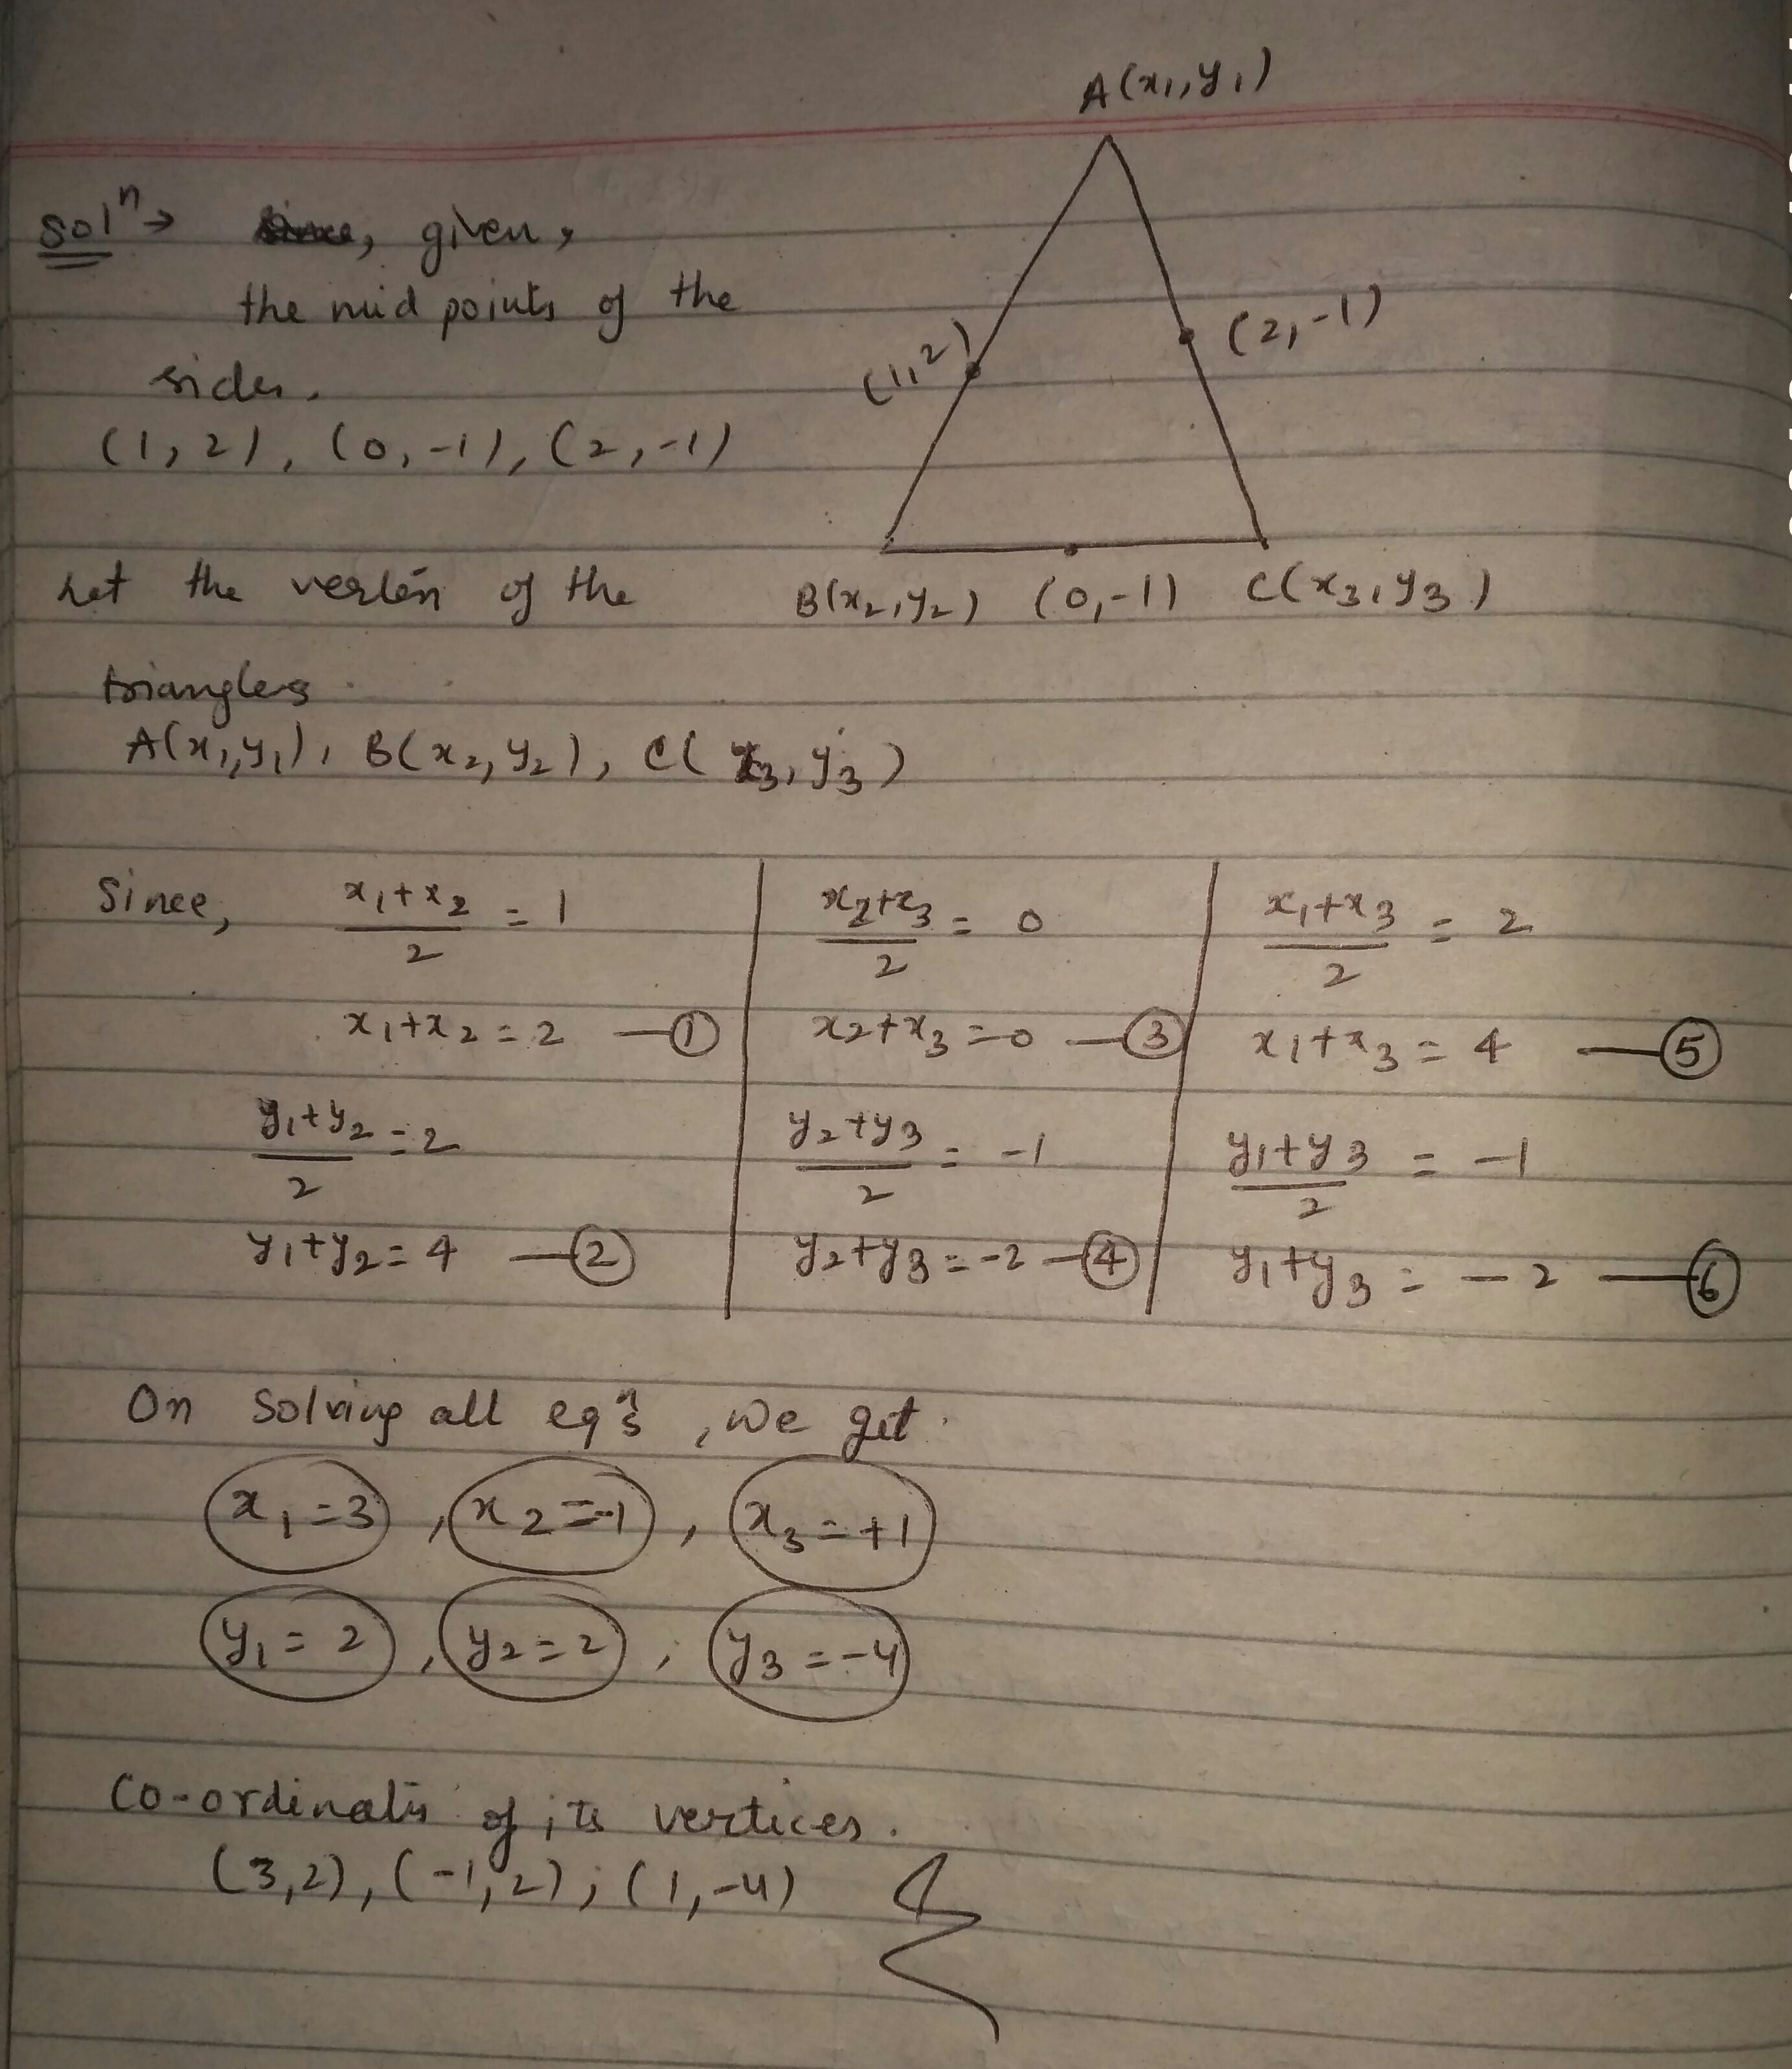 A(x₁,y₁)
Solⁿ→ Since, given,
the mid points of the
sides.
(1,2), (0,-1), (2,-1)
(1,2)
(2,-1)
Let the vertex of the
B(x₂,y₂) (0,-1) C(x₃,y₃)
triangles
A(x₁,y₁), B(x₂,y₂), C(x₃,y₃)
Since, (x₁+x₂)/2 = 1
x₁+x₂=2 —①
(y₁+y₂)/2 =2
y₁+y₂=4 —②
(x₂+x₃)/2 = 0
x₂+x₃=0 —③
(y₂+y₃)/2 = -1
y₂+y₃=-2 —④
(x₁+x₃)/2 = 2
x₁+x₃=4 —⑤
(y₁+y₃)/2 = -1
y₁+y₃=-2 —⑥
On solving all eqⁿs, we get.
x₁=3, x₂=-1, x₃=+1
y₁=2, y₂=2, y₃=-4
Co-ordinates of its vertices.
(3,2), (-1,2), (1,-4)